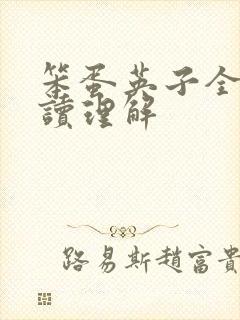 笨蛋英子全
讀理解
路易斯趙富貴